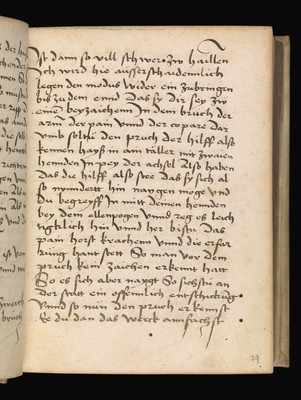 Ist dann so vill schwer zw haillen
Ich wird hie ausserschaidennlich
legen den modus wider ein zubringen
bis zu dem ennd Das sy dir sey zw
einem beyzaichenn In dem bruch der
arm der pain vnd der
vmb soltu den pruch der hilff also
kennen hays in ain mit zwaien
hennden In pey der achsel also haben
Das die hilff also stee Das sy sich al
so hin naygen moge vnd
Du begreyff In mitt deinen hennden
bey dem ellenpogen vnnd reg es leich
tigklich hin vnnd her bistu Das
pain horst krachenn vnnd die erfar
hant stett So man vor dem
pruch kein zaichen erkennt hatt
So es sich aber naygt So sichstu an
der statt ein offennlich entschickung
Vnnd so nun den pruch erkennst
Ee du dan das werck annfachst
29